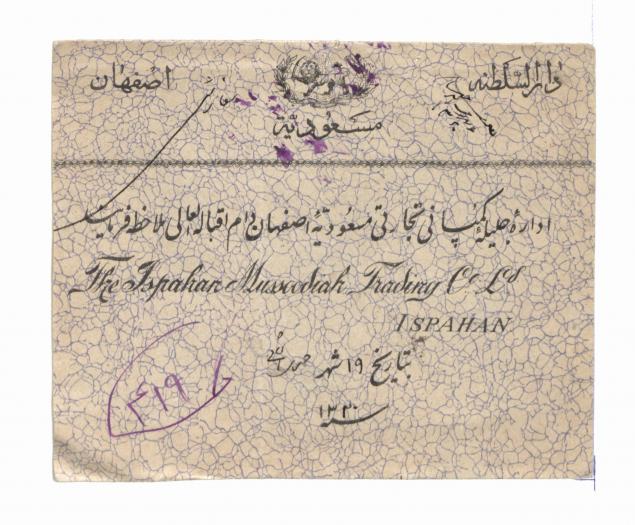 دارالسلطنه اصفهان
مسعودیّة
ادارهٔ جلیلهٔ کمپانی تجارتی مسعودیهٔ اصفهان دام اقباله العالی ملاحظه فرمایند
The Ispahan Mussoodiah Trading Co Ld
ISPAHAN
بتاریخ ۱۹ شهر
سنه ۱۳۲۰
۴۱۹